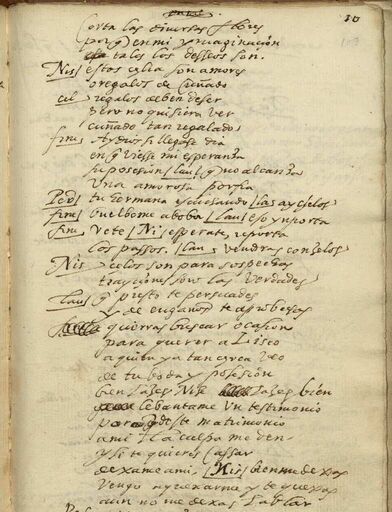 10
Corta las diversas flores
porq̃ en mi ymaginación
tales los desseos son.
Nis/ estos celia son amores
o regalos de cuñado
cel regalos deben de ser
pero no quisiera ver
cuñado tan regalado
finis Ay dios si llegase dia
en q̃ viesse mi esperança
su posesión / lau / q̃ no alcança
Una amorosa porfia
tu hermana escuchando / las ay celos
finis buelbome a boba / lau / eso ynporta
finis Vete / Ni / esperate, reporta
los passos. / lau, vendras con zelos
Nis celos son para sospechas
trayciones son las verdades
lau q̃ presto te persuades
y de engaños te aprobechas
querras buscar ocasion
para querer a Lisco
a quien ya tan cerca veo
de tu boda y posesión
bien hazes Nise hazes bien
lebantame Un testimonio
para q̃ deste matrimonio
a mi la culpa me den
y si te quieres cassar
dexame a mi, / Nis / bien me dexas
vengo a quexarme y te quexas
aun no me dexas hablar